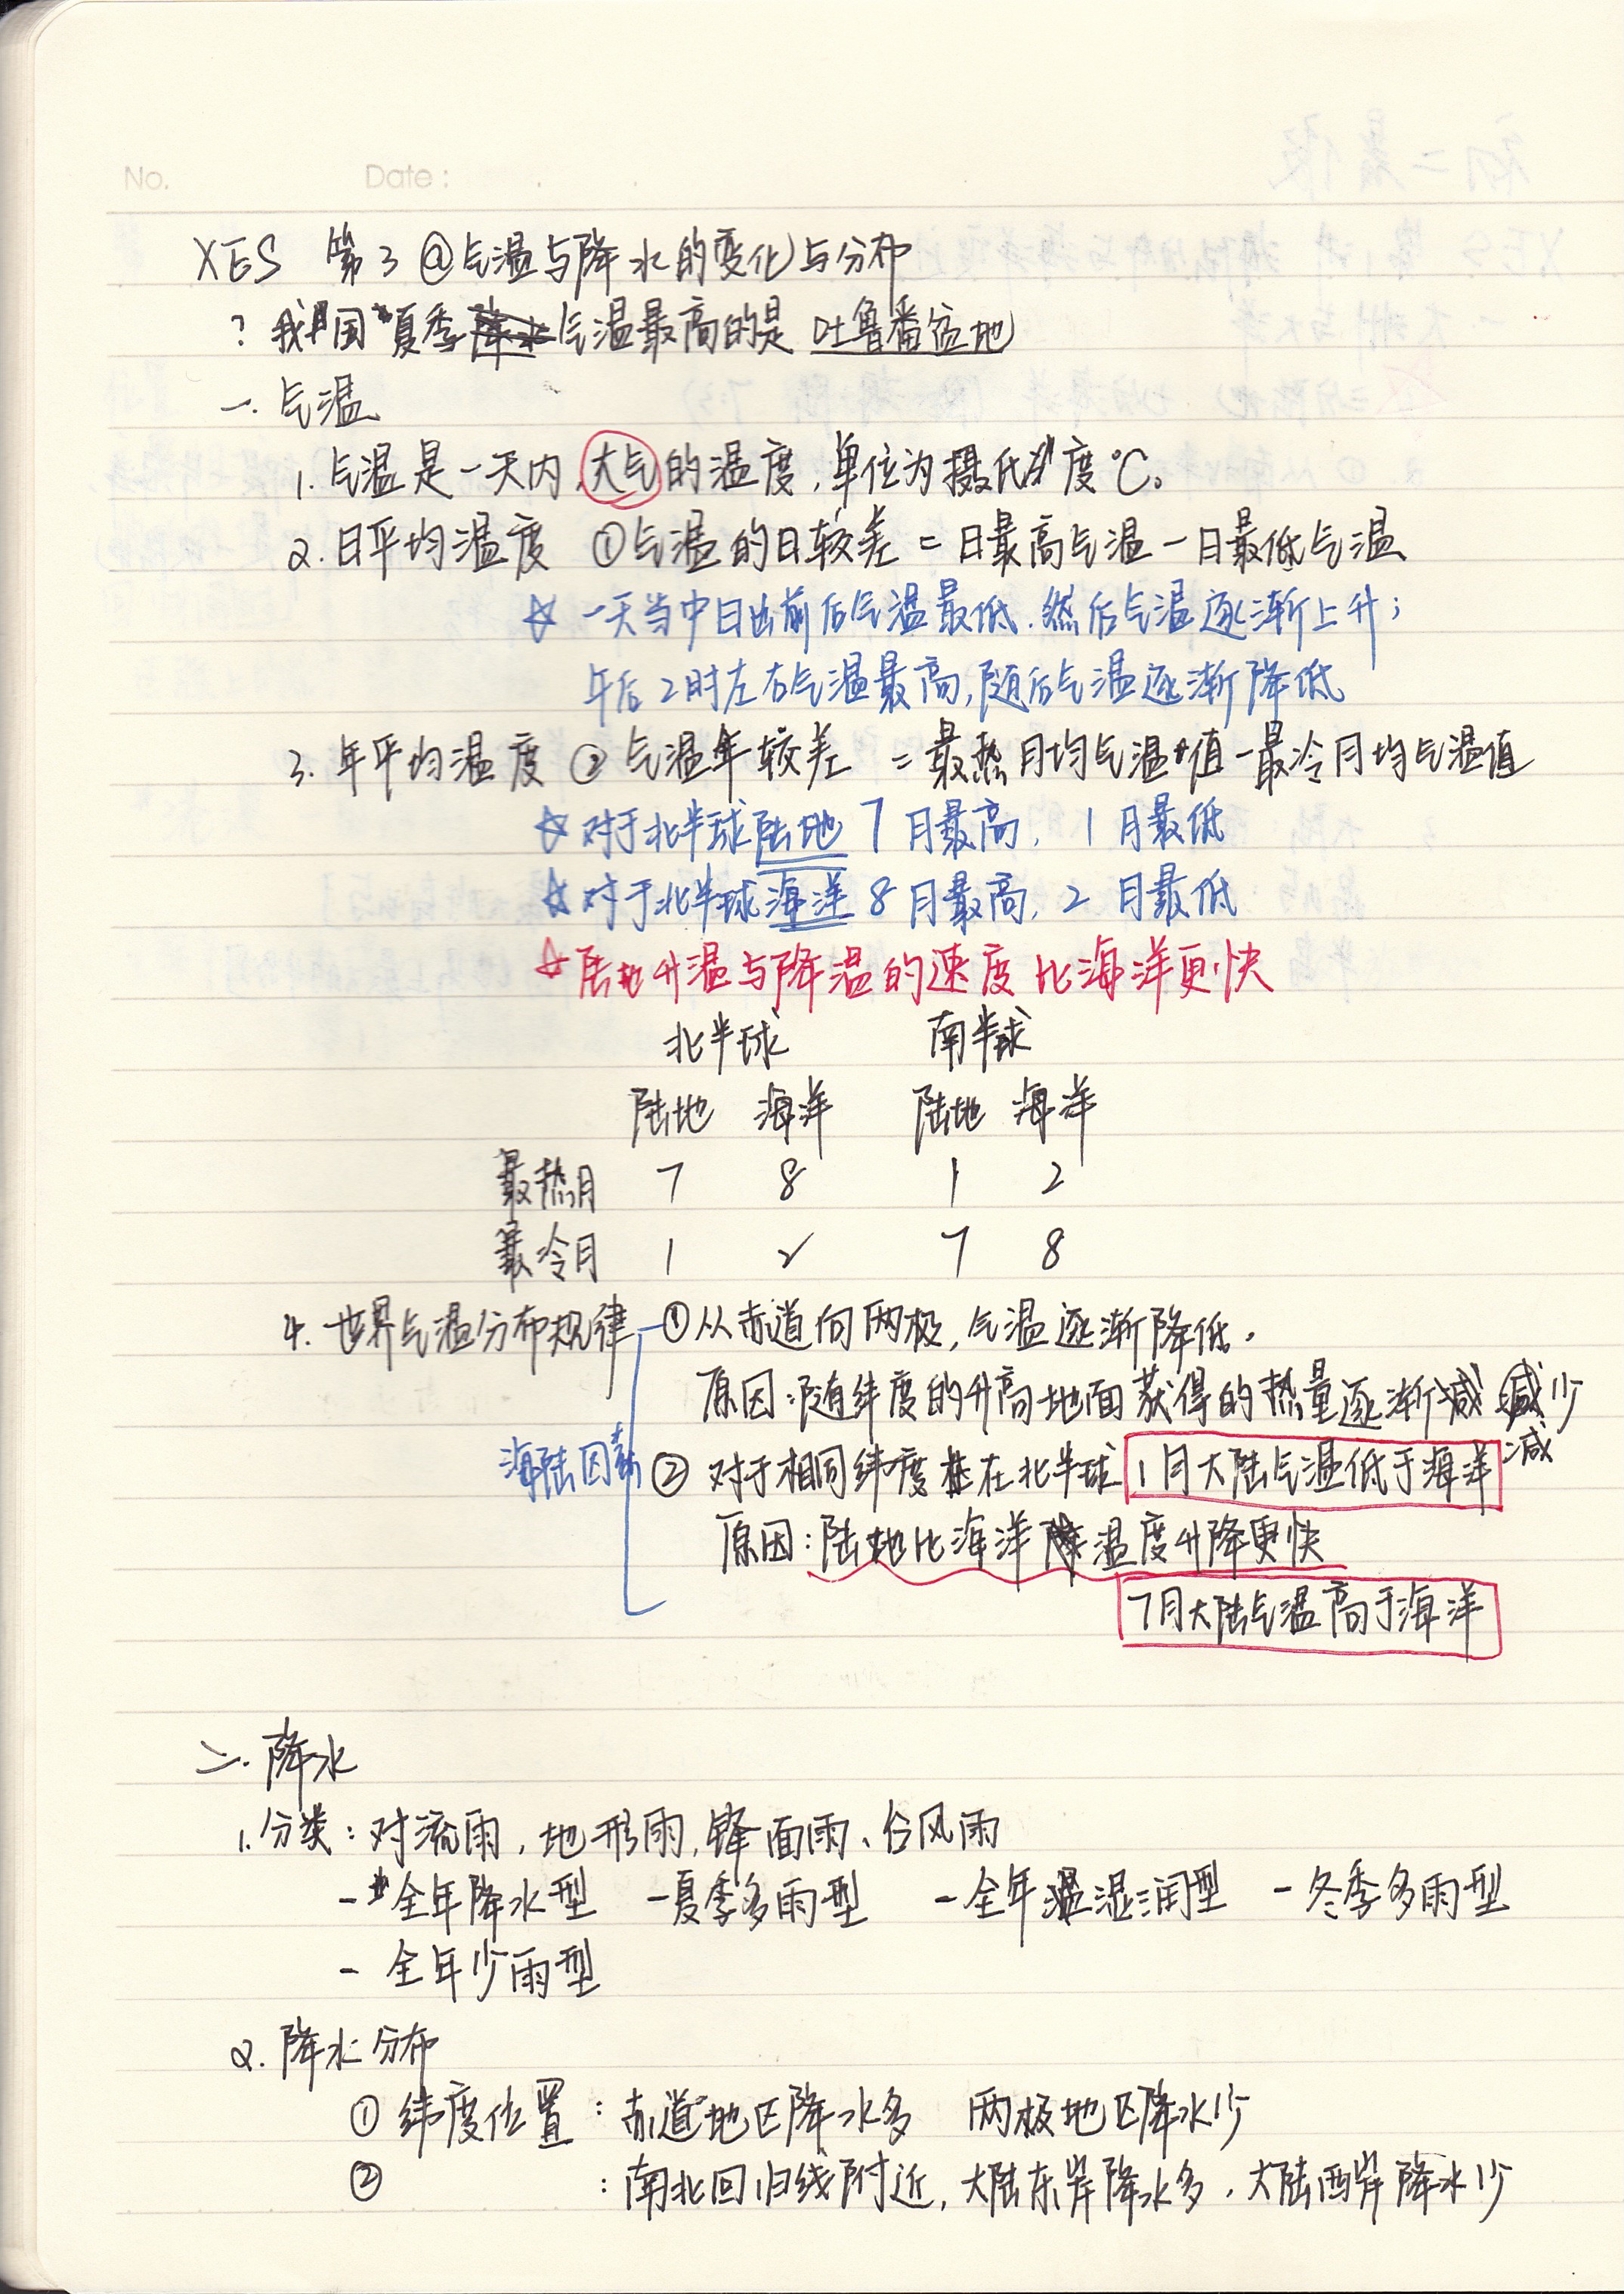 No. Date: . .
XES 第3@气温与降水的变化与分布
? 我国夏季气温最高的是 吐鲁番盆地
一. 气温
1. 气温是一天内,大气的温度,单位为摄氏度℃。
2. 日平均温度 ①气温的日较差 = 日最高气温 — 日最低气温
☆ 一天当中日出前后气温最低.然后气温逐渐上升;
午后2时左右气温最高,随后气温逐渐降低
3. 年平均温度 ② 气温年较差 = 最热月均气温值 — 最冷月均气温值
☆ 对于北半球陆地 7月最高, 1月最低
☆ 对于北半球海洋 8月最高, 2月最低
☆ 陆地升温与降温的速度比海洋更快
北半球 南半球
陆地 海洋 陆地 海洋
最热月 7 8 1 2
最冷月 1 2 7 8
4. 世界气温分布规律 ①从赤道向两极,气温逐渐降低.
原因:随纬度的升高地面获得的热量逐渐减少
减
海陆因素 ② 对于相同纬度在北半球 1月大陆气温低于海洋
原因:陆地比海洋温度升降更快
7月大陆气温高于海洋
二. 降水
1. 分类: 对流雨, 地形雨, 锋面雨、台风雨
- 全年降水型 -夏季多雨型 -全年湿润型 -冬季多雨型
- 全年少雨型
2. 降水分布
① 纬度位置: 赤道地区降水多 两极地区降水少
② : 南北回归线附近, 大陆东岸降水多, 大陆西岸降水少